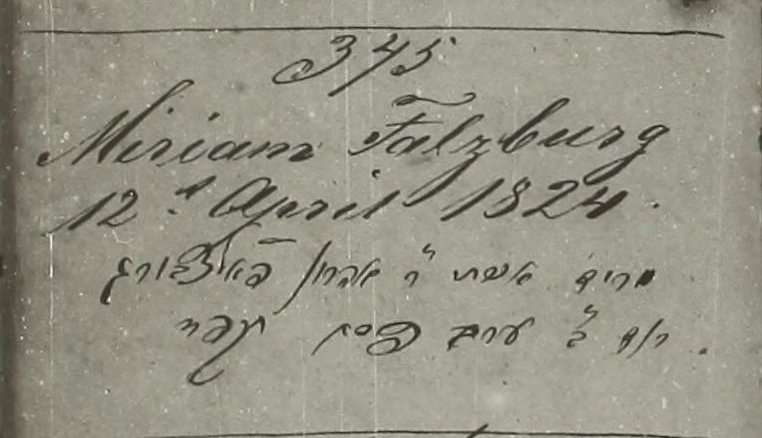 345
Miriam Falzburg
12.d April 1824.
מרים אשת ר' אהרן פאלצבורג
יום ב' ערב פסח תקפד.